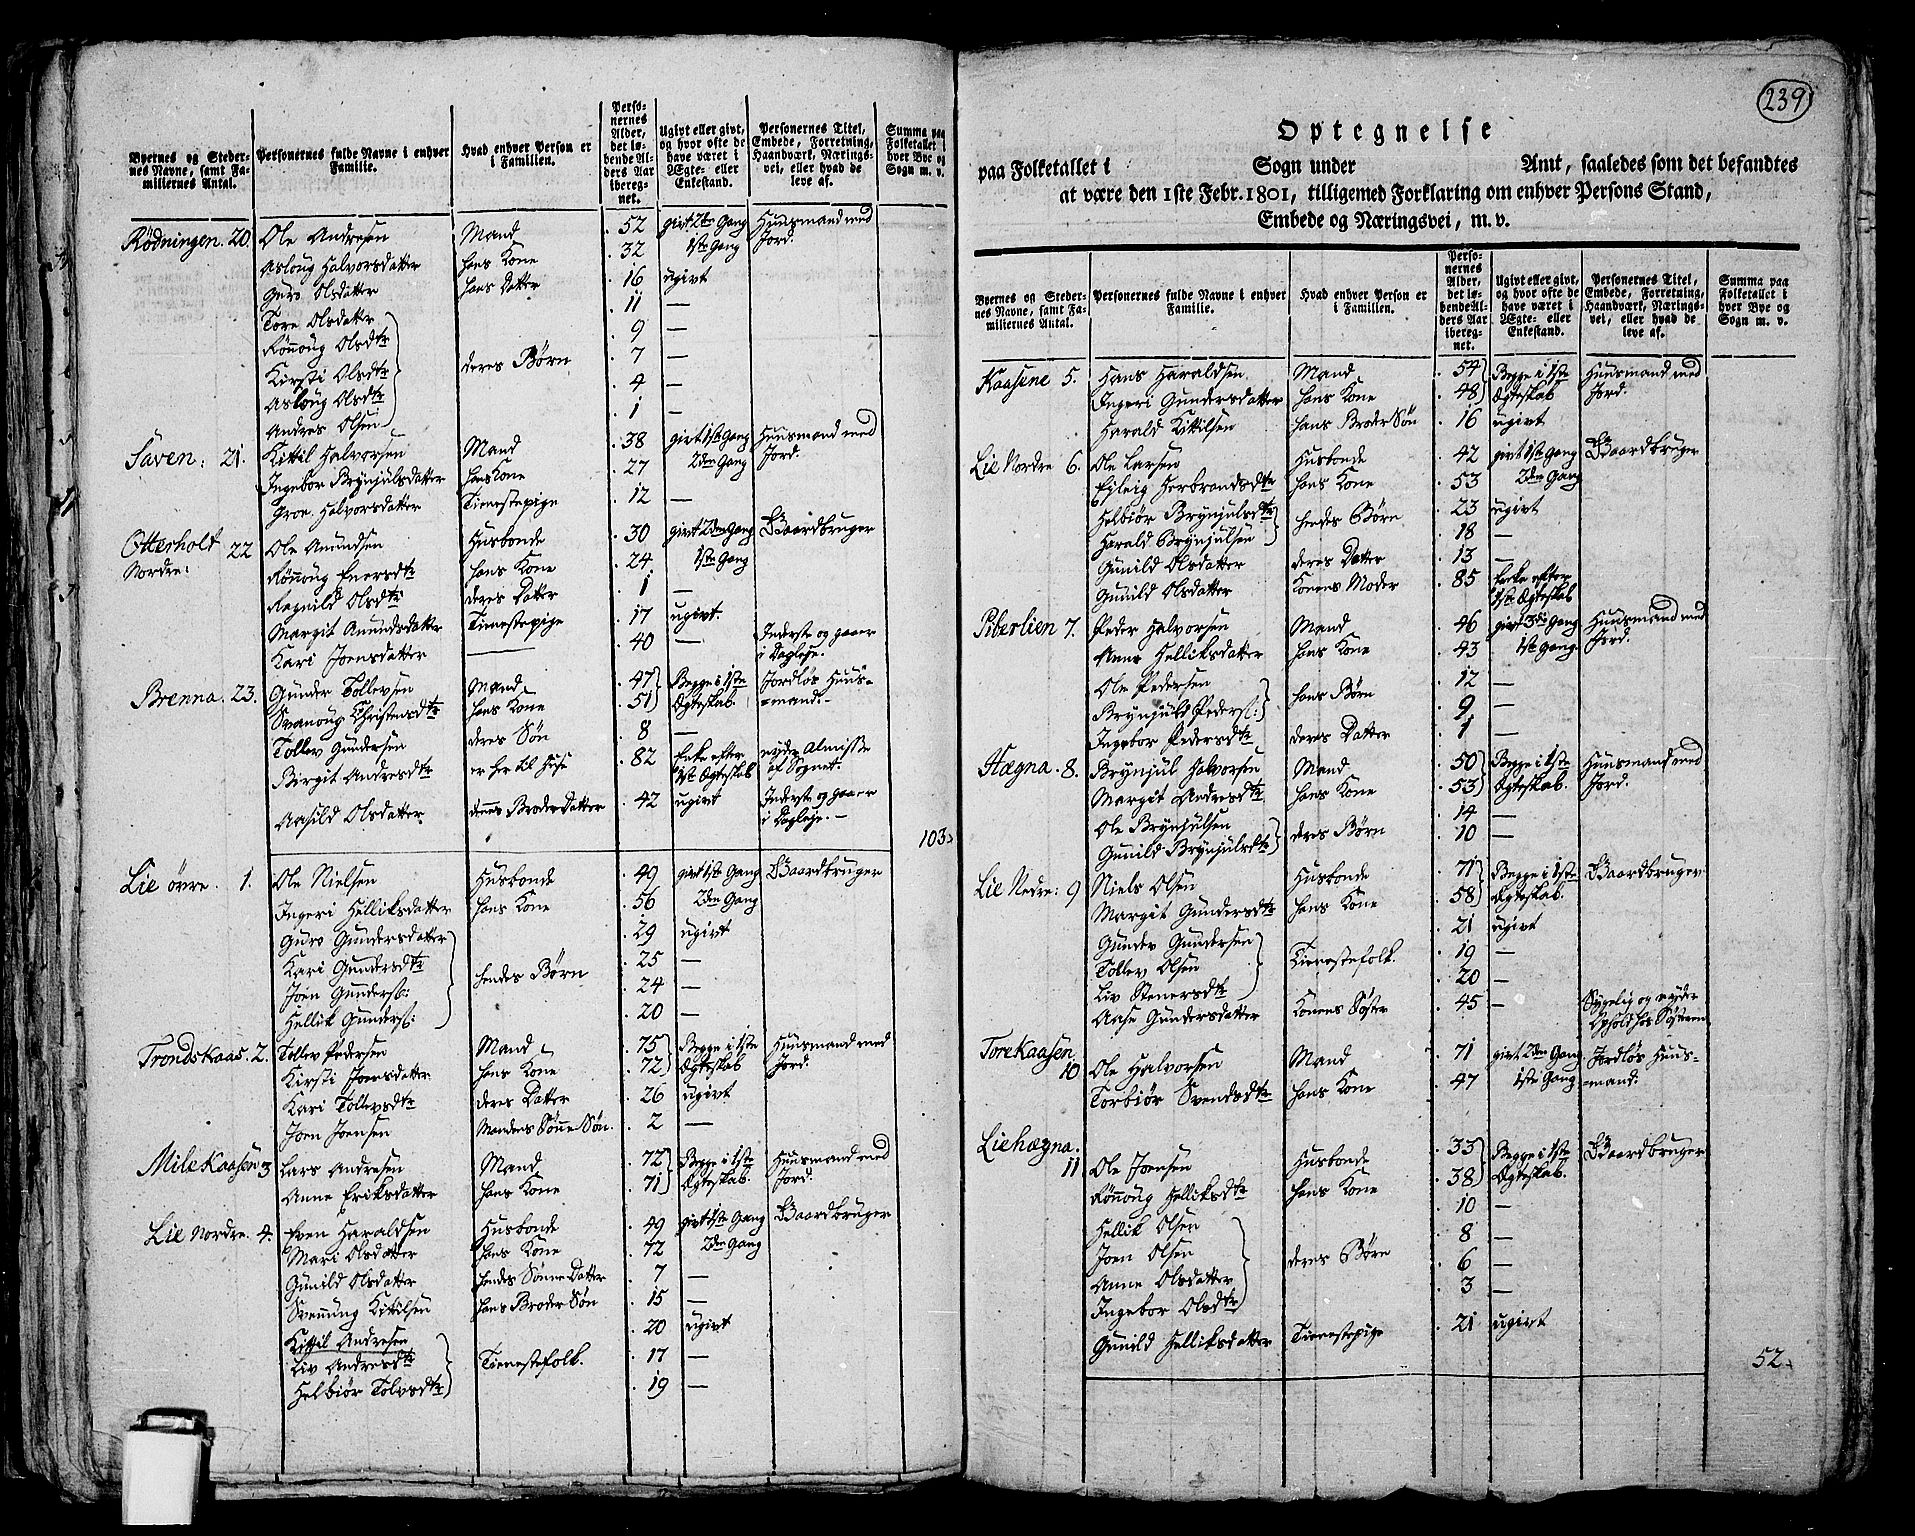 Byernes og Stedernes Navne, samt Familiernes Antal. | Personernes fulde Navne i enhver Familie. | Hvad enhver Person er i Familien. | Personernes Alder, det løbende Alders Aar iberegnet. | Ugivt eller givt, og hvor ofte de have været i Ægte- eller Enkestand. | Personernes Titel, Embede, Forretning, Haandværk, Næringsvei, eller hvad de leve af. | Summa paa Folketallet i hver Bye og Sogn m. v.
Rödningen. 20. Ole Andresen Mand 52 givt 2den Gang Huusmand med Jord.
Asloug Halvorsdatter hans Kone 32 1ste Gang
Guro Olsdatter hans Datter 16 ugivt
Tore Olsdatr 11 —
Rönnoug Olsdtr 9 —
Kirsti Olsdtr deres Børn 7 —
Asloug Olsdtr 4 —
Andres Olsen 1 —
Saven: 21. Kittil Halvorsen Mand 38 givt 1ste Gang Huusmand med Jord.
Ingebor Brynjulsdatter hans Kone 27 2den Gang
Groe Halvorsdatter Tienestepige 12 —
Otterholt Nordre: 22 Ole Amundsen Husbonde 30 givt 2den Gang Gaardbruger
Rönnoug Enersdtr hans Kone 24 1ste Gang
Ragnild Olsdtr deres Datter 1 —
Margit Amundsdatter Tienestepige 17 ugivt.
Kari Joensdatter —— 40 — Inderste og gaaer i Dagleje.
Brenna. 23. Gunder Tollevsen Mand 47 Begge i 1ste Ægteskab. Jordløs Huus=mand.
Svanoug Christensdtr hans Kone 51
Tollev Gundersen deres Søn 8 —
Birgit Andresdtr er her til Huse 82 Enke efter 1ste Ægteskab nyder Almisse af Sognet.
Aasild Olsdatter dennes Broder Datter 42 ugivt Inderste og gaaer i Dagleje. —
103
Lie övre. 1. Ole Nielsen Husbonde 49 givt 1ste Gang Gaardbruger
Ingeri Helliksdatter hans Kone 56 2den Gang
Guro Gundersdatter 29 ugivt
Kari Gundersdtr hendes Børn 25 —
Joen Gunders: 24 —
Hellik Gunders: 20 —
Trondskaas. 2. Tollev Pedersen Mand 75 Begge i 1ste Ægteskab Huusmand med Jord.
Kirsti Joensdatter hans Kone 72
Kari Tollevsdtr deres Datter 26 ugivt
Joen Joensen Mandens Sønne Søn. 2 —
MileKaasen 3 Lars Andresen Mand 72 Begge i 1ste Ægteskab. Huusmand med Jord.
Anne Eriksdatter hans Kone 71
Lie Nordre. 4. Even Haraldsen Husbonde 49 givt 1ste Gang Gaardbruger
Mari Olsdatter hans Kone 72 2den Gang
Gunild Olsdatter hendes Sønne Datter 7 —
Svennung Kittilsen hans Broder Søn 15 —
Kittil Andresen 20 ugivt
Liv Andresdtr Tienestefolk. 17 —
Helbiör Tolvsdtr 19 —
239
Optegnelse
paa Folketallet i Sogn under Amt, saaledes som det befandtes
at være den 1ste Febr. 1801, tilligemed Forklaring om enhver Persons Stand,
Embede og Næringsvei, m. v.
Byernes og Stedernes Navne, samt Familiernes Antal. | Personernes fulde Navne i enhver Familie. | Hvad enhver Person er i Familien. | Personernes Alder, det løbende Alders Aar iberegnet. | Ugivt eller givt, og hvor ofte de have været i Ægte- eller Enkestand. | Personernes Titel, Embede, Forretning, Haandværk, Næringsvei, eller hvad de leve af. | Summa paa Folketallet i hver Bye og Sogn m. v.
Kaasene 5. Hans Haraldsen Mand 54 Begge i 1ste Ægteskab Huusmand med Jord.
Ingeri Gundersdatter hans Kone 48
Harald Kittilsen hans Broder Søn 16 ugivt
Lie Nordre 6. Ole Larsen Husbonde 42 givt 1ste Gang Gaardbruger
Ejleig Herbrandsdtr hans Kone 53 2den Gang
Helbiör Brynjulsdtr hendes Børn 23 ugivt
Harald Brynjulsen 18 —
Gunild Olsdatter deres Datter 13 —
Gunild Olsdatter Konens Moder 85 Enke efter 1ste Ægteskab
Piberlien 7. Peder Halvorsen Mand 46 givt 3die Gang Huusmand med Jord.
Anne Helliksdatter hans Kone 43 1ste Gang.
Ole Pedersen hans Børn 12 —
Brynjuld Peders: 9 —
Ingebor Pedersdtr deres Datter 1 —
Hægna. 8. Brynjul Halvorsen Mand 50 Begge i 1ste Ægteskab. Huusmand med Jord.
Margit Andresdtr hans Kone 53
Ole Brynjulsen deres Børn 14 —
Gunild Brynjulsdtr 10 —
Lie Nedre: 9 Niels Olsen Husbonde 71 Begge i 1ste Ægteskab. Gaardbruger
Margit Gundersdtr hans Kone 58
Gunder Gundersen 21 ugivt
Tollev Olsen Tienestefolk. 19 —
Liv Stenersdtr 20 —
Aase Gundersdatter Konens Søster 45 — Sygelig og nyder Ophold hos Søsteren
ToreKaasen 10 Ole Halvorsen Mand 71 givt 2den Gang Jordløs Huus=mand.
Torbiör Svendsdtr hans Kone 47 1ste Gang
Liehægna. 11 Ole Joensen Husbonde 33 Begge i 1ste Ægteskab. Gaardbruger
Rönnoug Helliksdtr hans Kone 38
Hellik Olsen 10 —
Joen Olsen deres Børn 8 —
Anne Olsdatter 6 —
Ingebor Olsdtr 3 —
Gunild Helliksdatter Tienestepige 21 ugivt
52